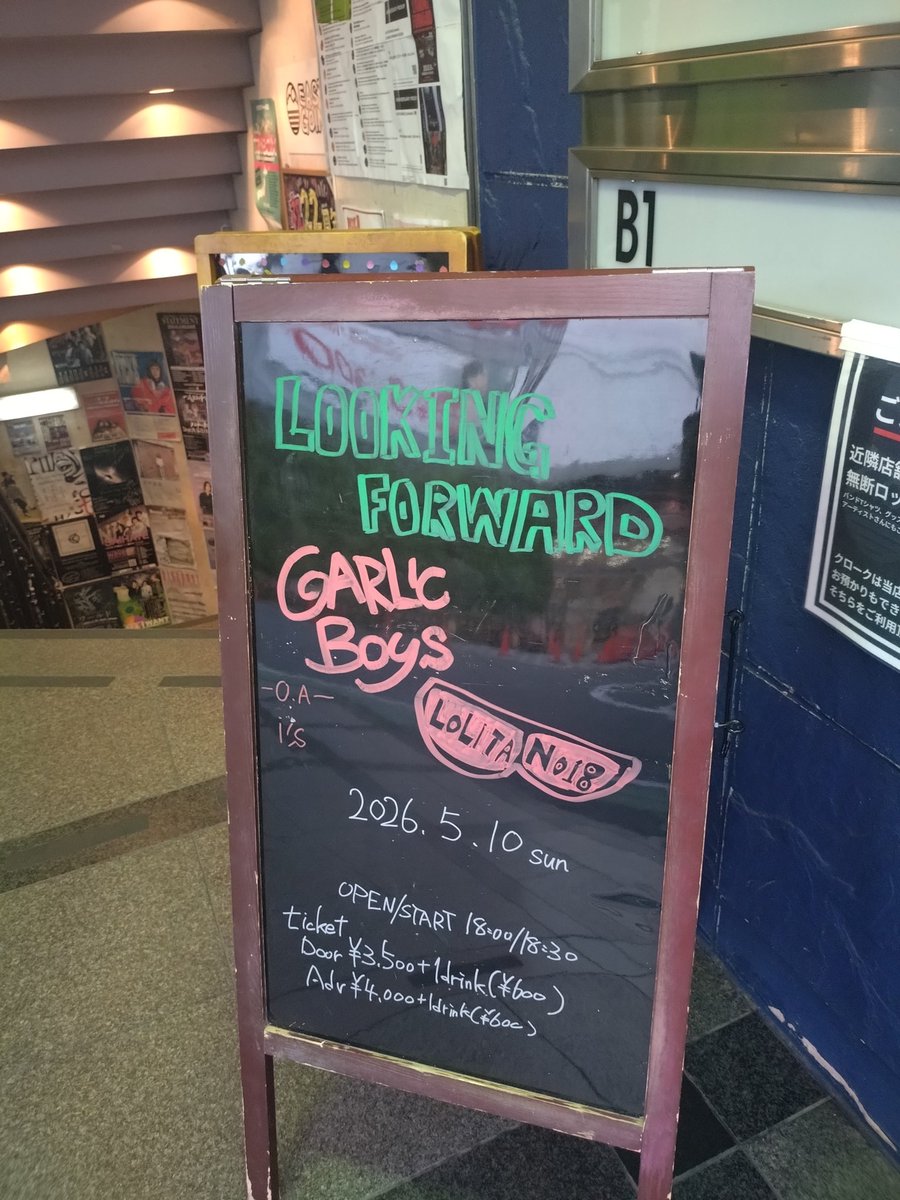 B1
LOOKING
FORWARD
GARLIC
BOYS
-O.A-
i's
LOLITA No18
2026.5.10 sun
OPEN/START 18:00/18:30
ticket
Door ¥3.500+1drink(¥600)
Adv ¥4.000+1drink(¥600)
近隣店舗
無断ロッ
クロークは当店
お預かりもでき
そちらをご利用